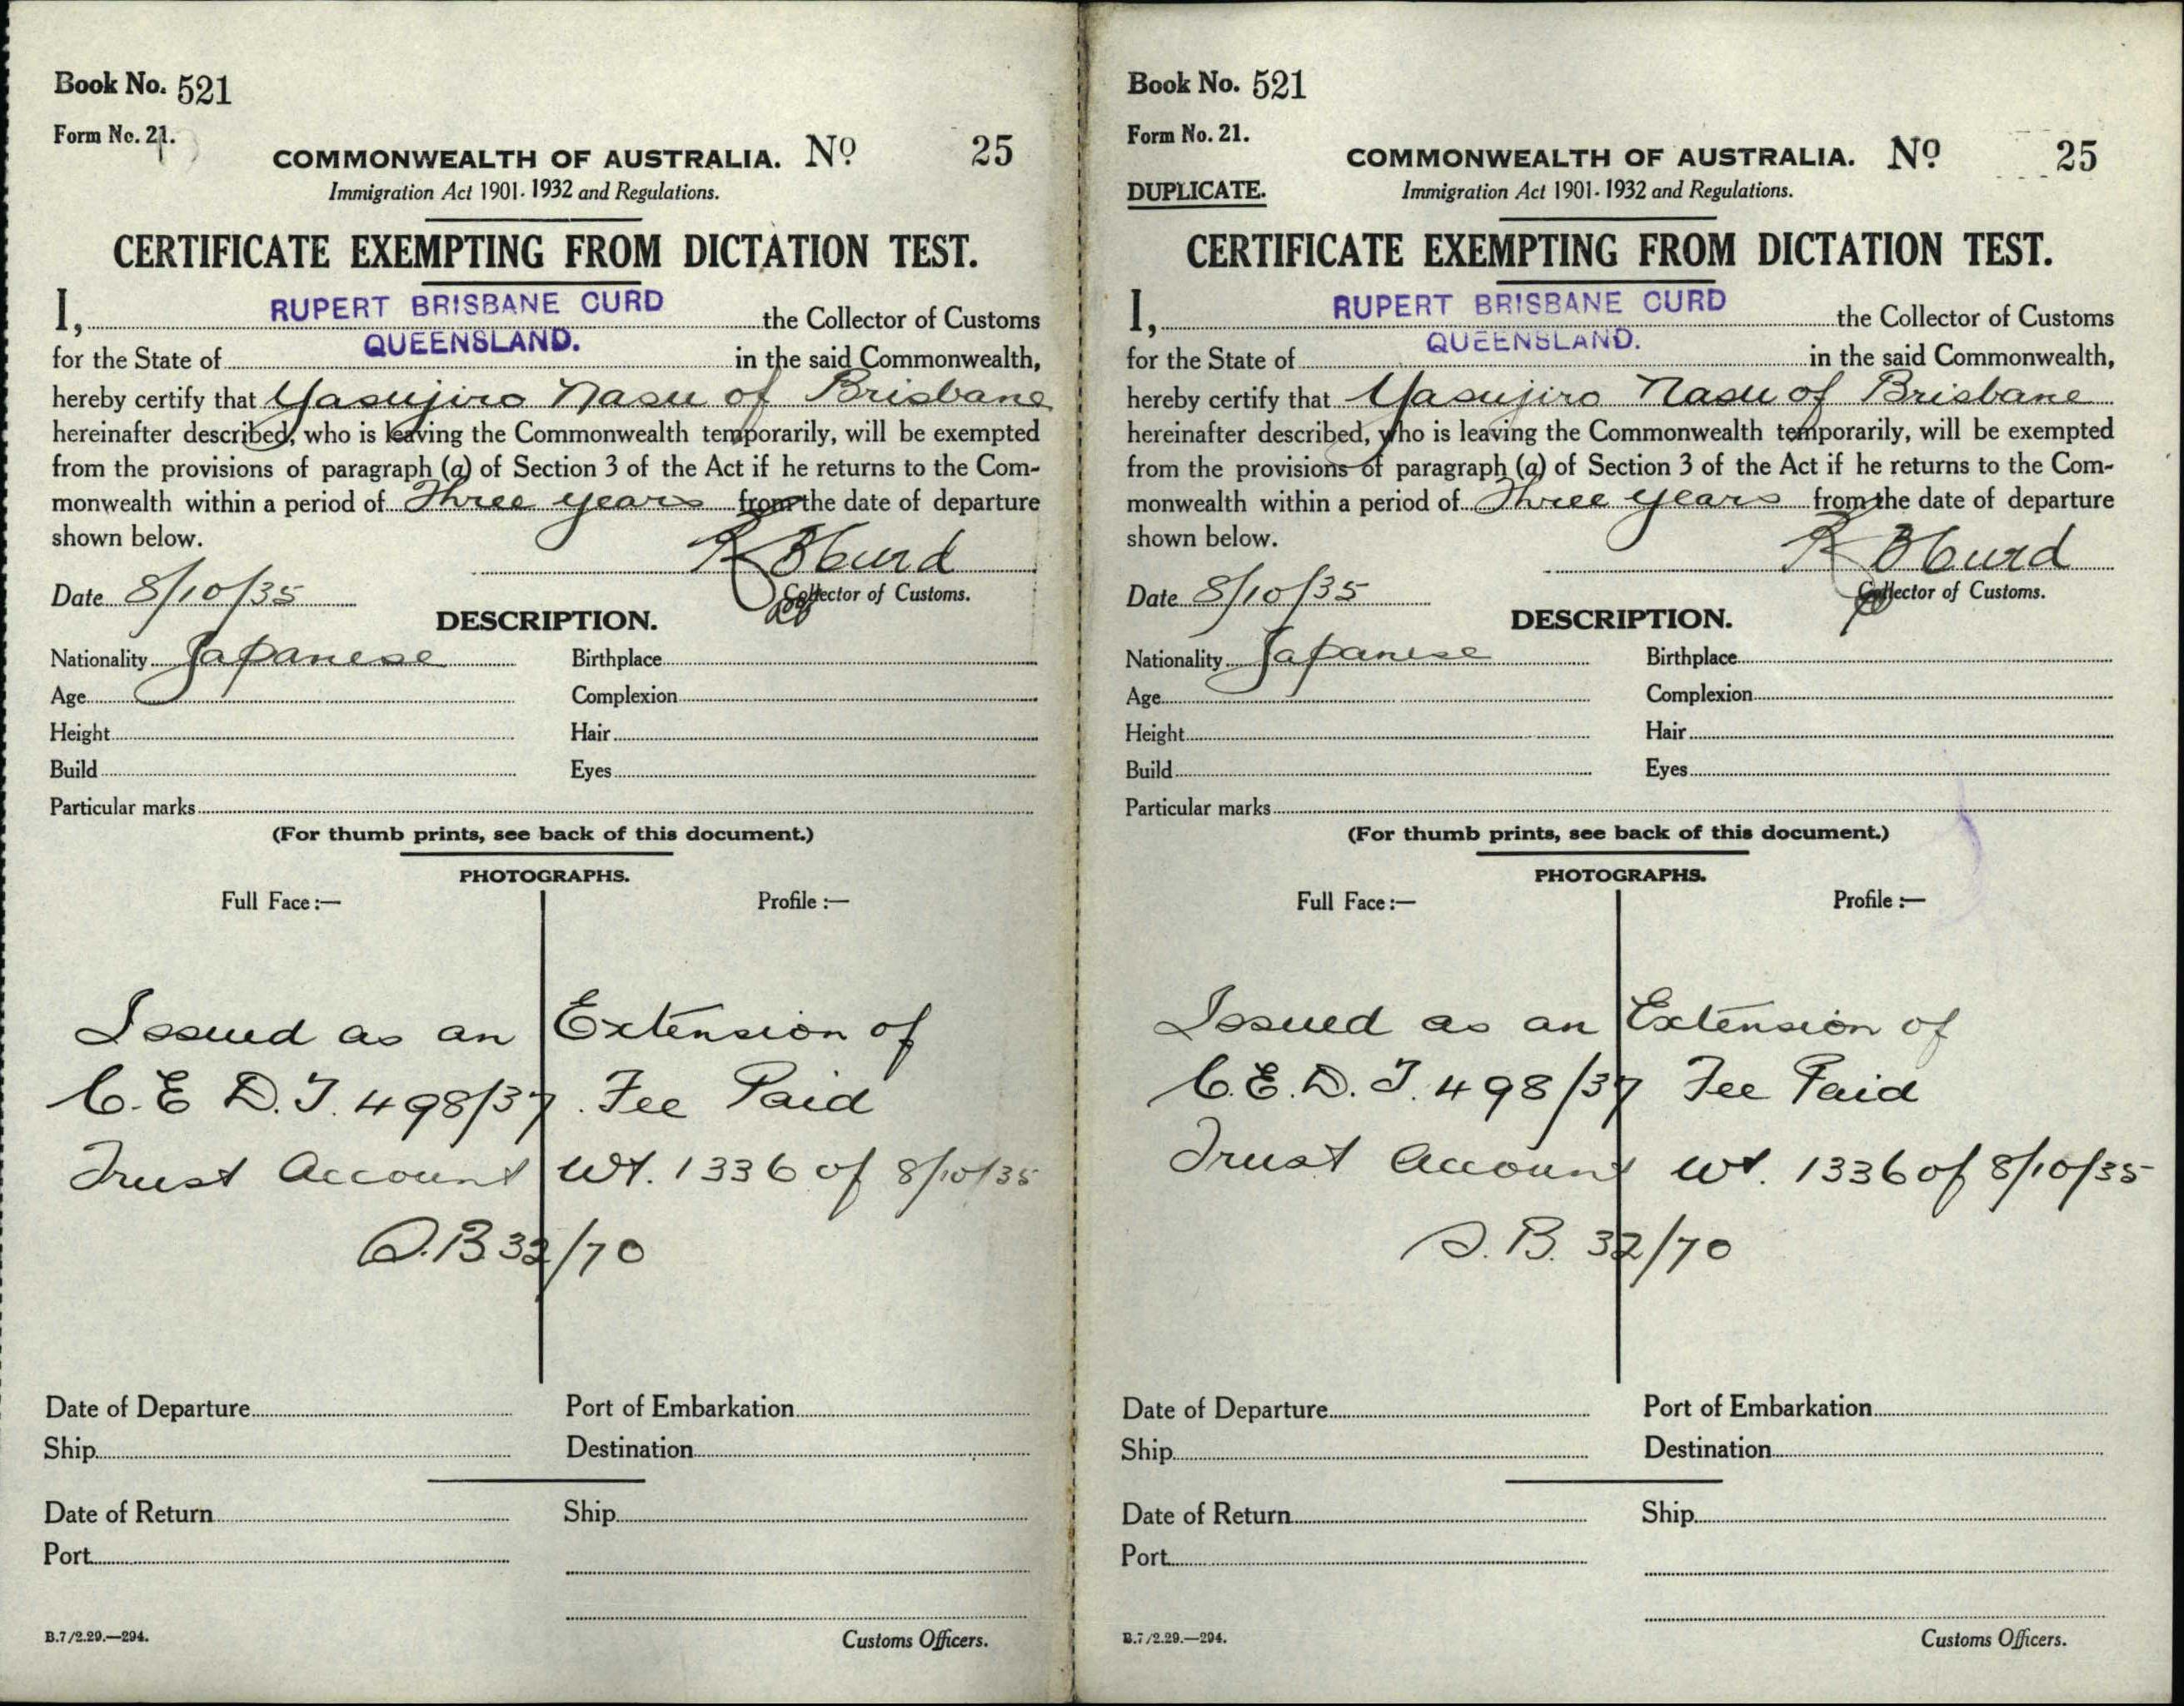 Book No. 521
Form No. 21.
COMMONWEALTH OF AUSTRALIA. No 25
Immigration Act 1901-1932 and Regulations.
CERTIFICATE EXEMPTING FROM DICTATION TEST.
I, RUPERT BRISBANE CURD the Collector of Customs
for the State of QUEENSLAND. in the said Commonwealth,
hereby certify that Yasujiro Nasu of Brisbane
hereinafter described, who is leaving the Commonwealth temporarily, will be exempted
from the provisions of paragraph (a) of Section 3 of the Act if he returns to the Com-
monwealth within a period of Three years from the date of departure
shown below.
R B Curd
Date 8/10/35 Collector of Customs.
DESCRIPTION.
Nationality Japanese Birthplace
Age Complexion
Height Hair
Build Eyes
Particular marks
(For thumb prints, see back of this document.)
PHOTOGRAPHS.
Full Face :— Profile :—
Issued as an Extension of
C.E D.T. 498/37. Fee Paid
Trust Account Wt. 1336 of 8/10/35
D.B 32/70
Date of Departure Port of Embarkation
Ship Destination
Date of Return Ship
Port
B.7/2.29.—294. Customs Officers.
Book No. 521
Form No. 21.
COMMONWEALTH OF AUSTRALIA. No 25
DUPLICATE. Immigration Act 1901-1932 and Regulations.
CERTIFICATE EXEMPTING FROM DICTATION TEST.
I, RUPERT BRISBANE CURD the Collector of Customs
for the State of QUEENSLAND. in the said Commonwealth,
hereby certify that Yasujiro Nasu of Brisbane
hereinafter described, who is leaving the Commonwealth temporarily, will be exempted
from the provisions of paragraph (a) of Section 3 of the Act if he returns to the Com-
monwealth within a period of Three years from the date of departure
shown below.
R B Curd
Date 8/10/35 Collector of Customs.
DESCRIPTION.
Nationality Japanese Birthplace
Age Complexion
Height Hair
Build Eyes
Particular marks
(For thumb prints, see back of this document.)
PHOTOGRAPHS.
Full Face :— Profile :—
Issued as an Extension of
C.E.D.T. 498/37 Fee Paid
Trust Account Wt. 1336 of 8/10/35
D.B. 32/70
Date of Departure Port of Embarkation
Ship Destination
Date of Return Ship
Port
B.7/2.29.—294. Customs Officers.